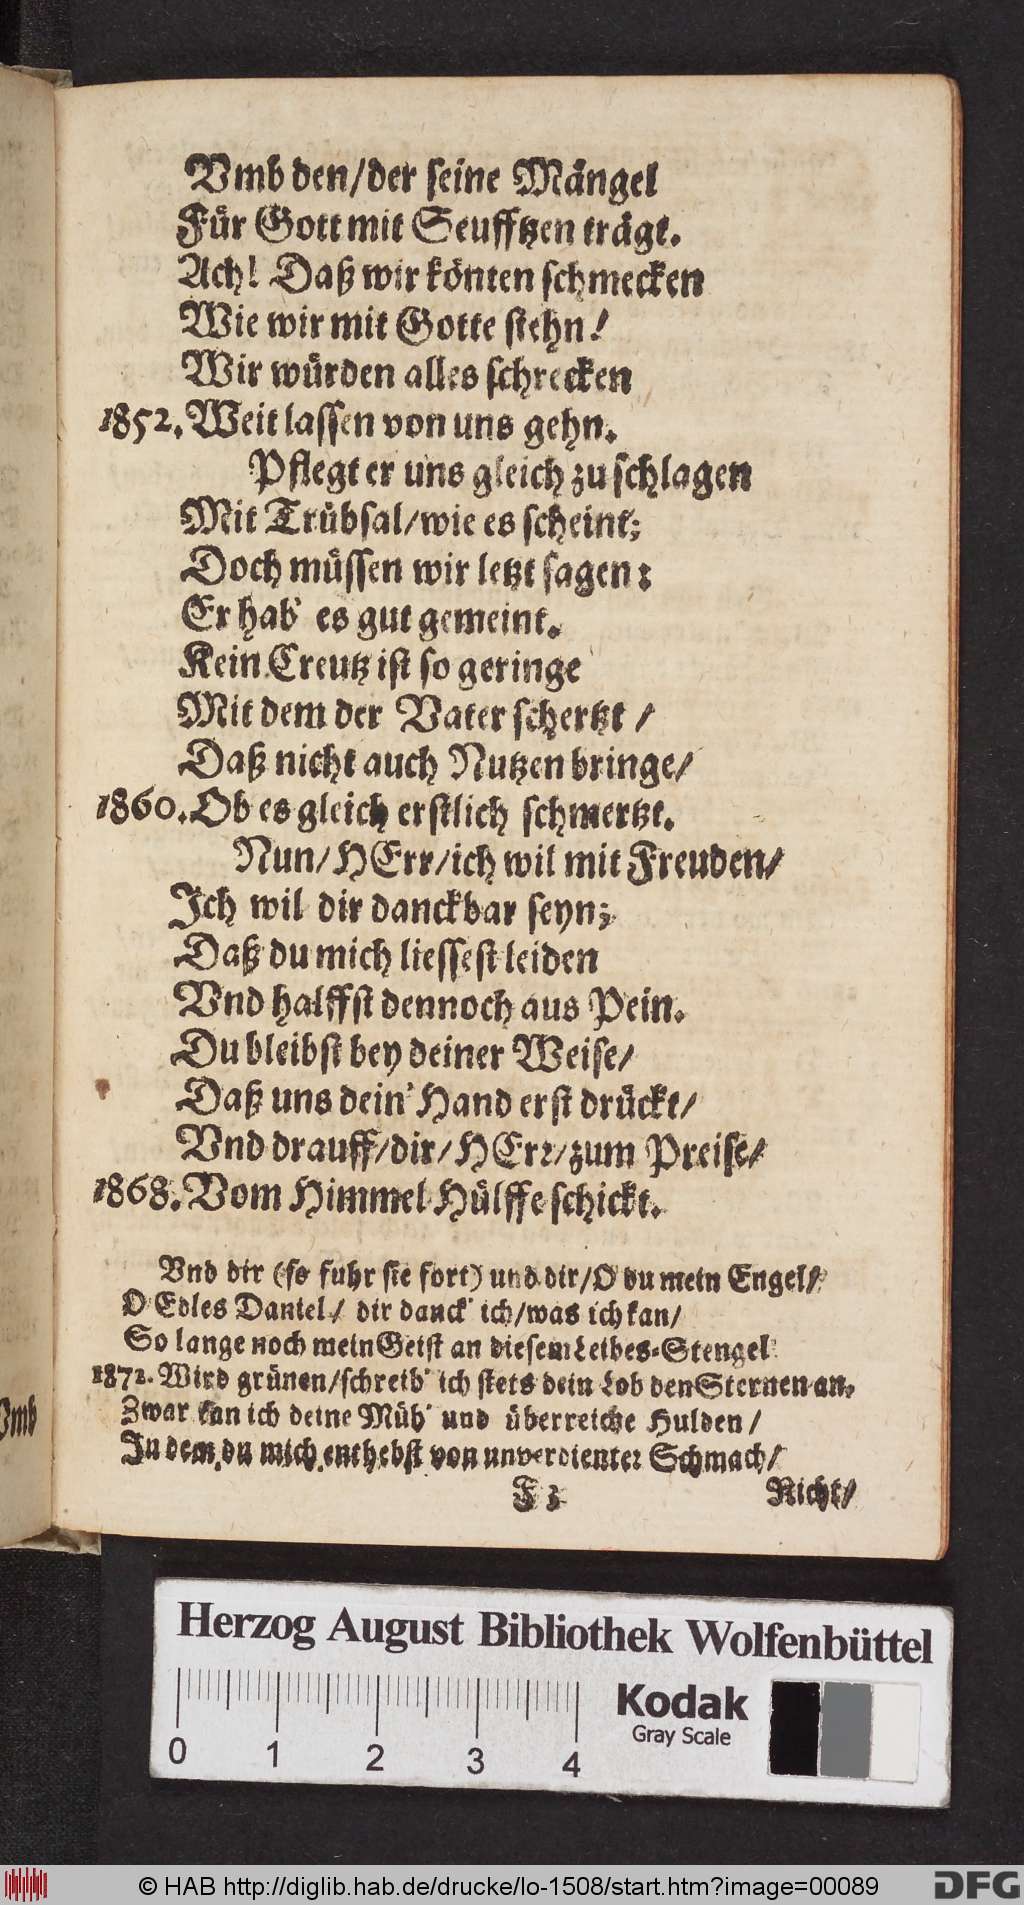 Vmb den/der seine Mängel
Für Gott mit Seufftzen trägt.
Ach! Daß wir könten schmecken
Wie wir mit Gotte stehn!
Wir würden alles schrecken
1852. Weit lassen von uns gehn.
Pflegt er uns gleich zu schlagen
Mit Trübsal/wie es scheint;
Doch müssen wir letzt sagen:
Er hab' es gut gemeint.
Kein Creutz ist so geringe
Mit dem der Vater schertzt /
Daß nicht auch Nutzen bringe/
1860. Ob es gleich erstlich schmertzt.
Nun/HErr/ich wil mit Freuden/
Ich wil dir danckbar seyn;
Daß du mich liessest leiden
Vnd halffst dennoch aus Pein.
Du bleibst bey deiner Weise/
Daß uns dein' Hand erst drückt/
Vnd drauff/dir/HErr/zum Preise/
1868. Vom Himmel Hülffe schickt.
Vnd dir (so fuhr sie fort) und dir/O du mein Engel/
O Edles Daniel/ dir danck' ich/was ich kan/
So lange noch mein Geist an diesem Leibes-Stengel
1872. Wird grünen/schreib' ich stets dein Lob den Sternen an.
Zwar kan ich deine Müh' und überreiche Hulden/
In dem du mich enthebst von unverdienter Schmach/
F 3 Nicht/
Vmb
Herzog August Bibliothek Wolfenbüttel
0 1 2 3 4
Kodak
Gray Scale
© HAB http://diglib.hab.de/drucke/lo-1508/start.htm?image=00089
DFG